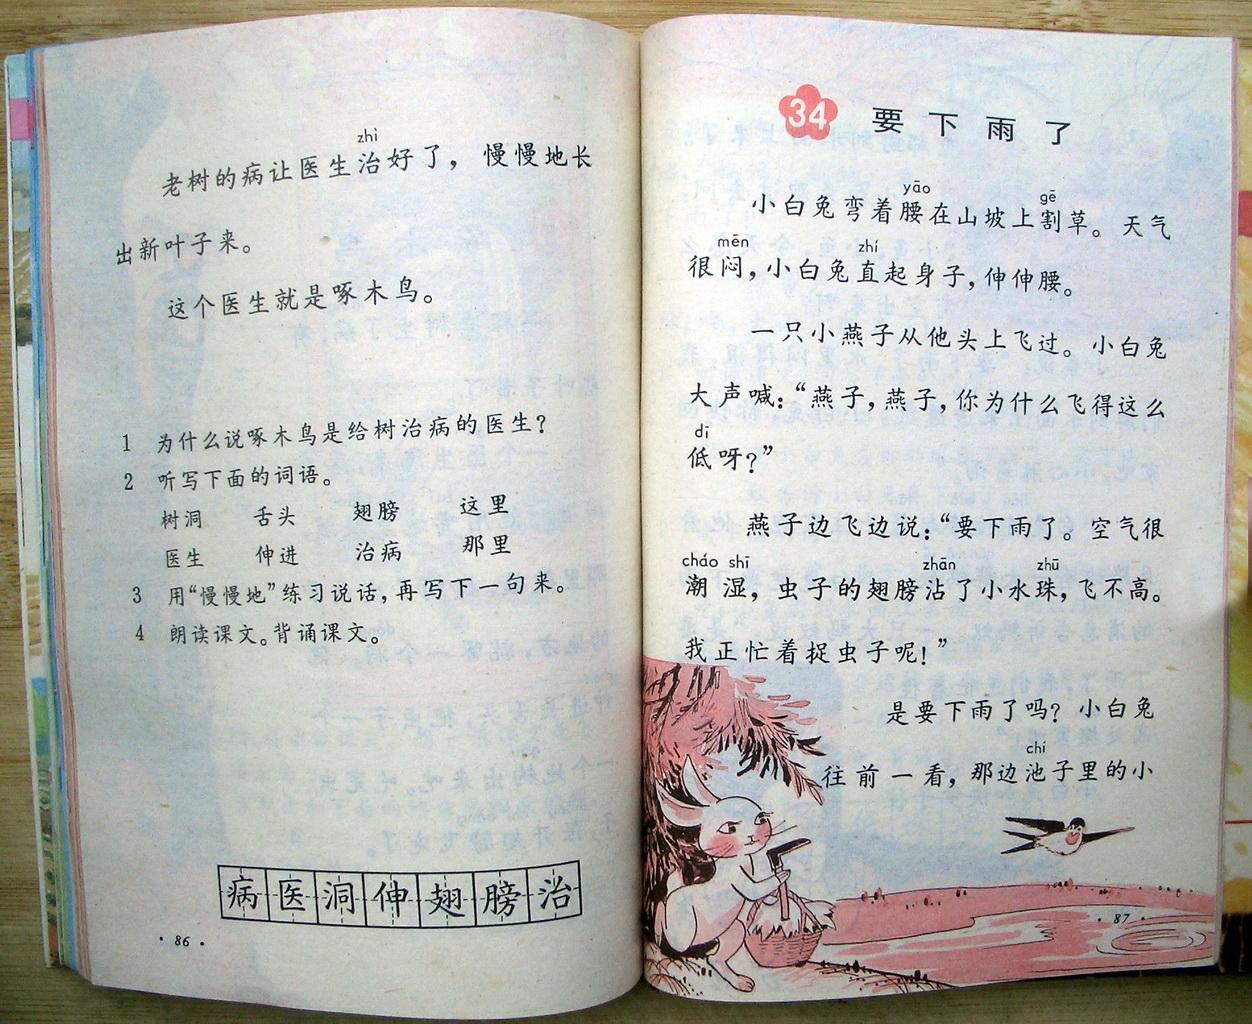 zhì
老树的病让医生治好了，慢慢地长
出新叶子来。
这个医生就是啄木鸟。
1 为什么说啄木鸟是给树治病的医生？
2 听写下面的词语。
树洞 舌头 翅膀 这里
医生 伸进 治病 那里
3 用“慢慢地”练习说话，再写下一句来。
4 朗读课文。背诵课文。
病医洞伸翅膀治
· 86 ·
34 要下雨了
yāo gē
小白兔弯着腰在山坡上割草。天气
mēn zhí
很闷，小白兔直起身子，伸伸腰。
一只小燕子从他头上飞过。小白兔
大声喊：“燕子，燕子，你为什么飞得这么
dī
低呀？”
燕子边飞边说：“要下雨了。空气很
cháo shī zhān zhū
潮湿，虫子的翅膀沾了小水珠，飞不高。
我正忙着捉虫子呢！”
是要下雨了吗？小白兔
chí
往前一看，那边池子里的小
· 87 ·